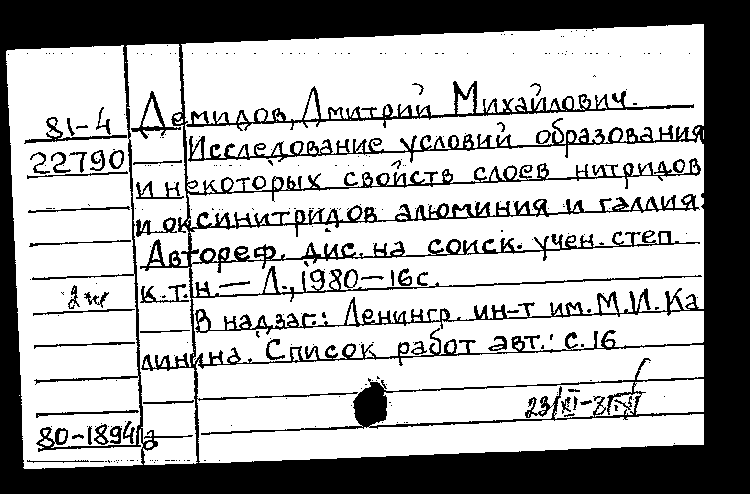 81-4 Демидов, Дмитрий Михайлович.
22790 Исследование условий образования
и некоторых свойств слоев нитридов
и оксинитридов алюминия и галлия:
Автореф. дис. на соиск. учен. степ.
к.т.н. — Л., 1980 — 16 с.
В надзаг.: Ленингр. ин-т им. М.И. Ка
линина. Список работ авт.: с. 16
80-18941а